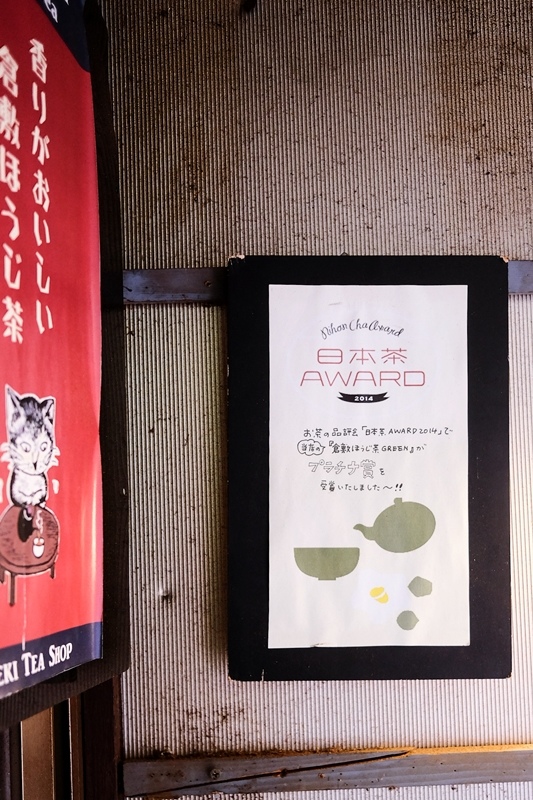 香りがおいしい
倉敷ほうじ茶
EKI TEA SHOP
Nihon Cha Award
日本茶
AWARD
2014
お茶の品評会「日本茶AWARD2014」で
当店の『倉敷ほうじ茶GREEN』が
プラチナ賞を
受賞いたしました〜!!